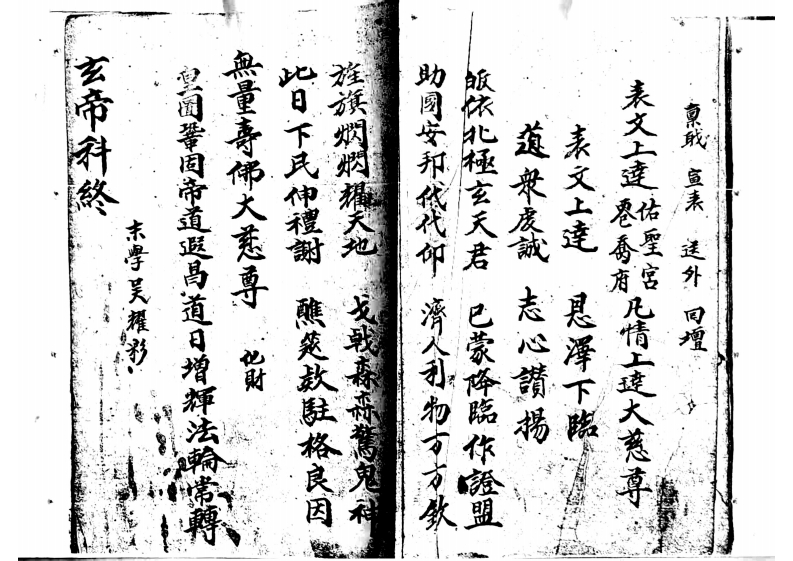 稟職 宣表 送外 回壇
表文上達佑聖宮 凡情上達大慈尊
表文上達 恩澤下臨
道衆虔誠 志心讃揚
皈依北極玄天君 已蒙降臨作證盟
助國安邦代代仰 濟人利物万万欽
旌旗燜燜耀天地 戈戟森森驚鬼神
此日下民伸禮謝 醮筵敖駐格良因
無量壽佛大慈尊 化財
皇圖鞏固帝道遐昌道日增輝法輪常轉
末學吴耀彩
玄帝科終